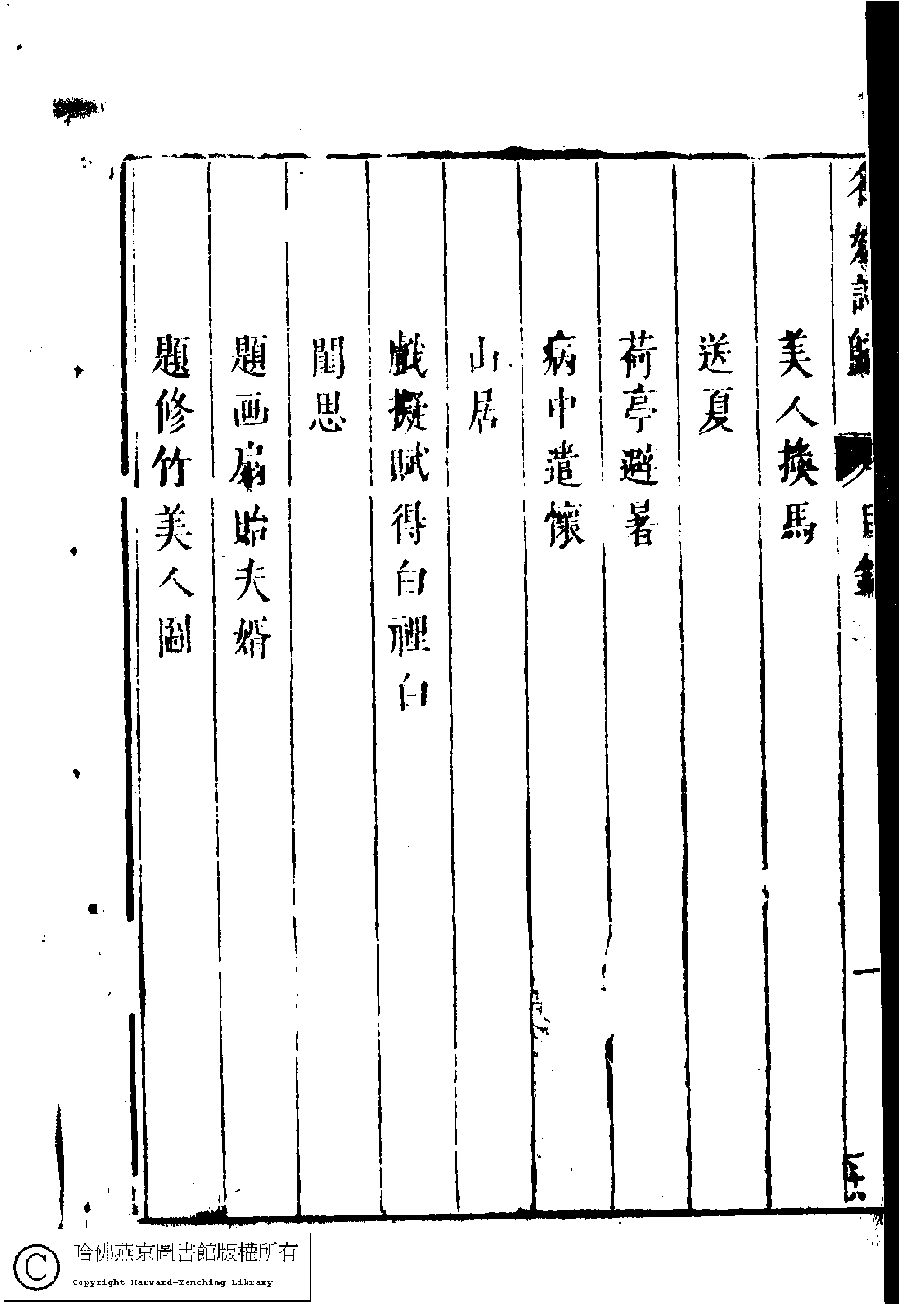 美人換馬
送夏
荷亭避暑
病中遣懷
山居
戲擬賦得白裡白
閨思
題画扇貽夫婿
題修竹美人圖
目錄
一
哈佛燕京圖書館版權所有
Copyright Harvard-Yenching Library